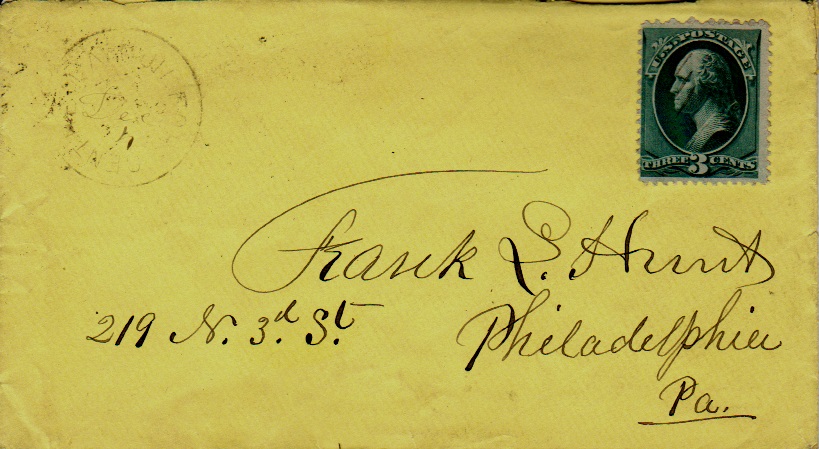 U.S. POSTAGE
THREE 3 CENTS
Frank L. Hunt
219 N. 3.d St.
Philadelphia
Pa.